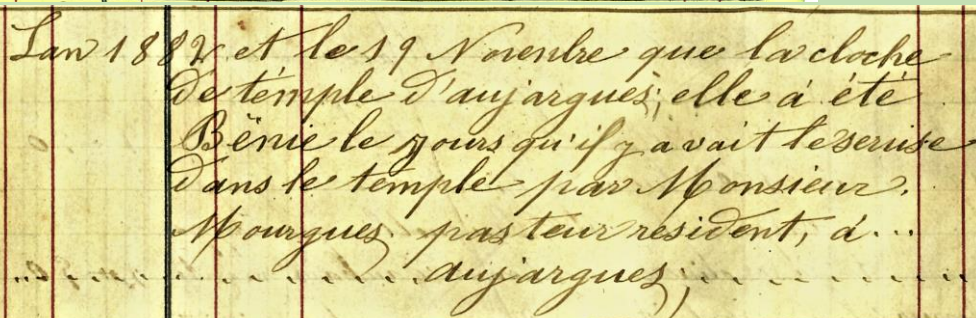 Lan 1882 et le 19 Novenbre que la cloche
de témple d'aujargues; elle á été
Bënie le yours qu'il y avait le servise
dans le témple par Monsieur.
Mourgues, pasteur résident, á...
aujargues,